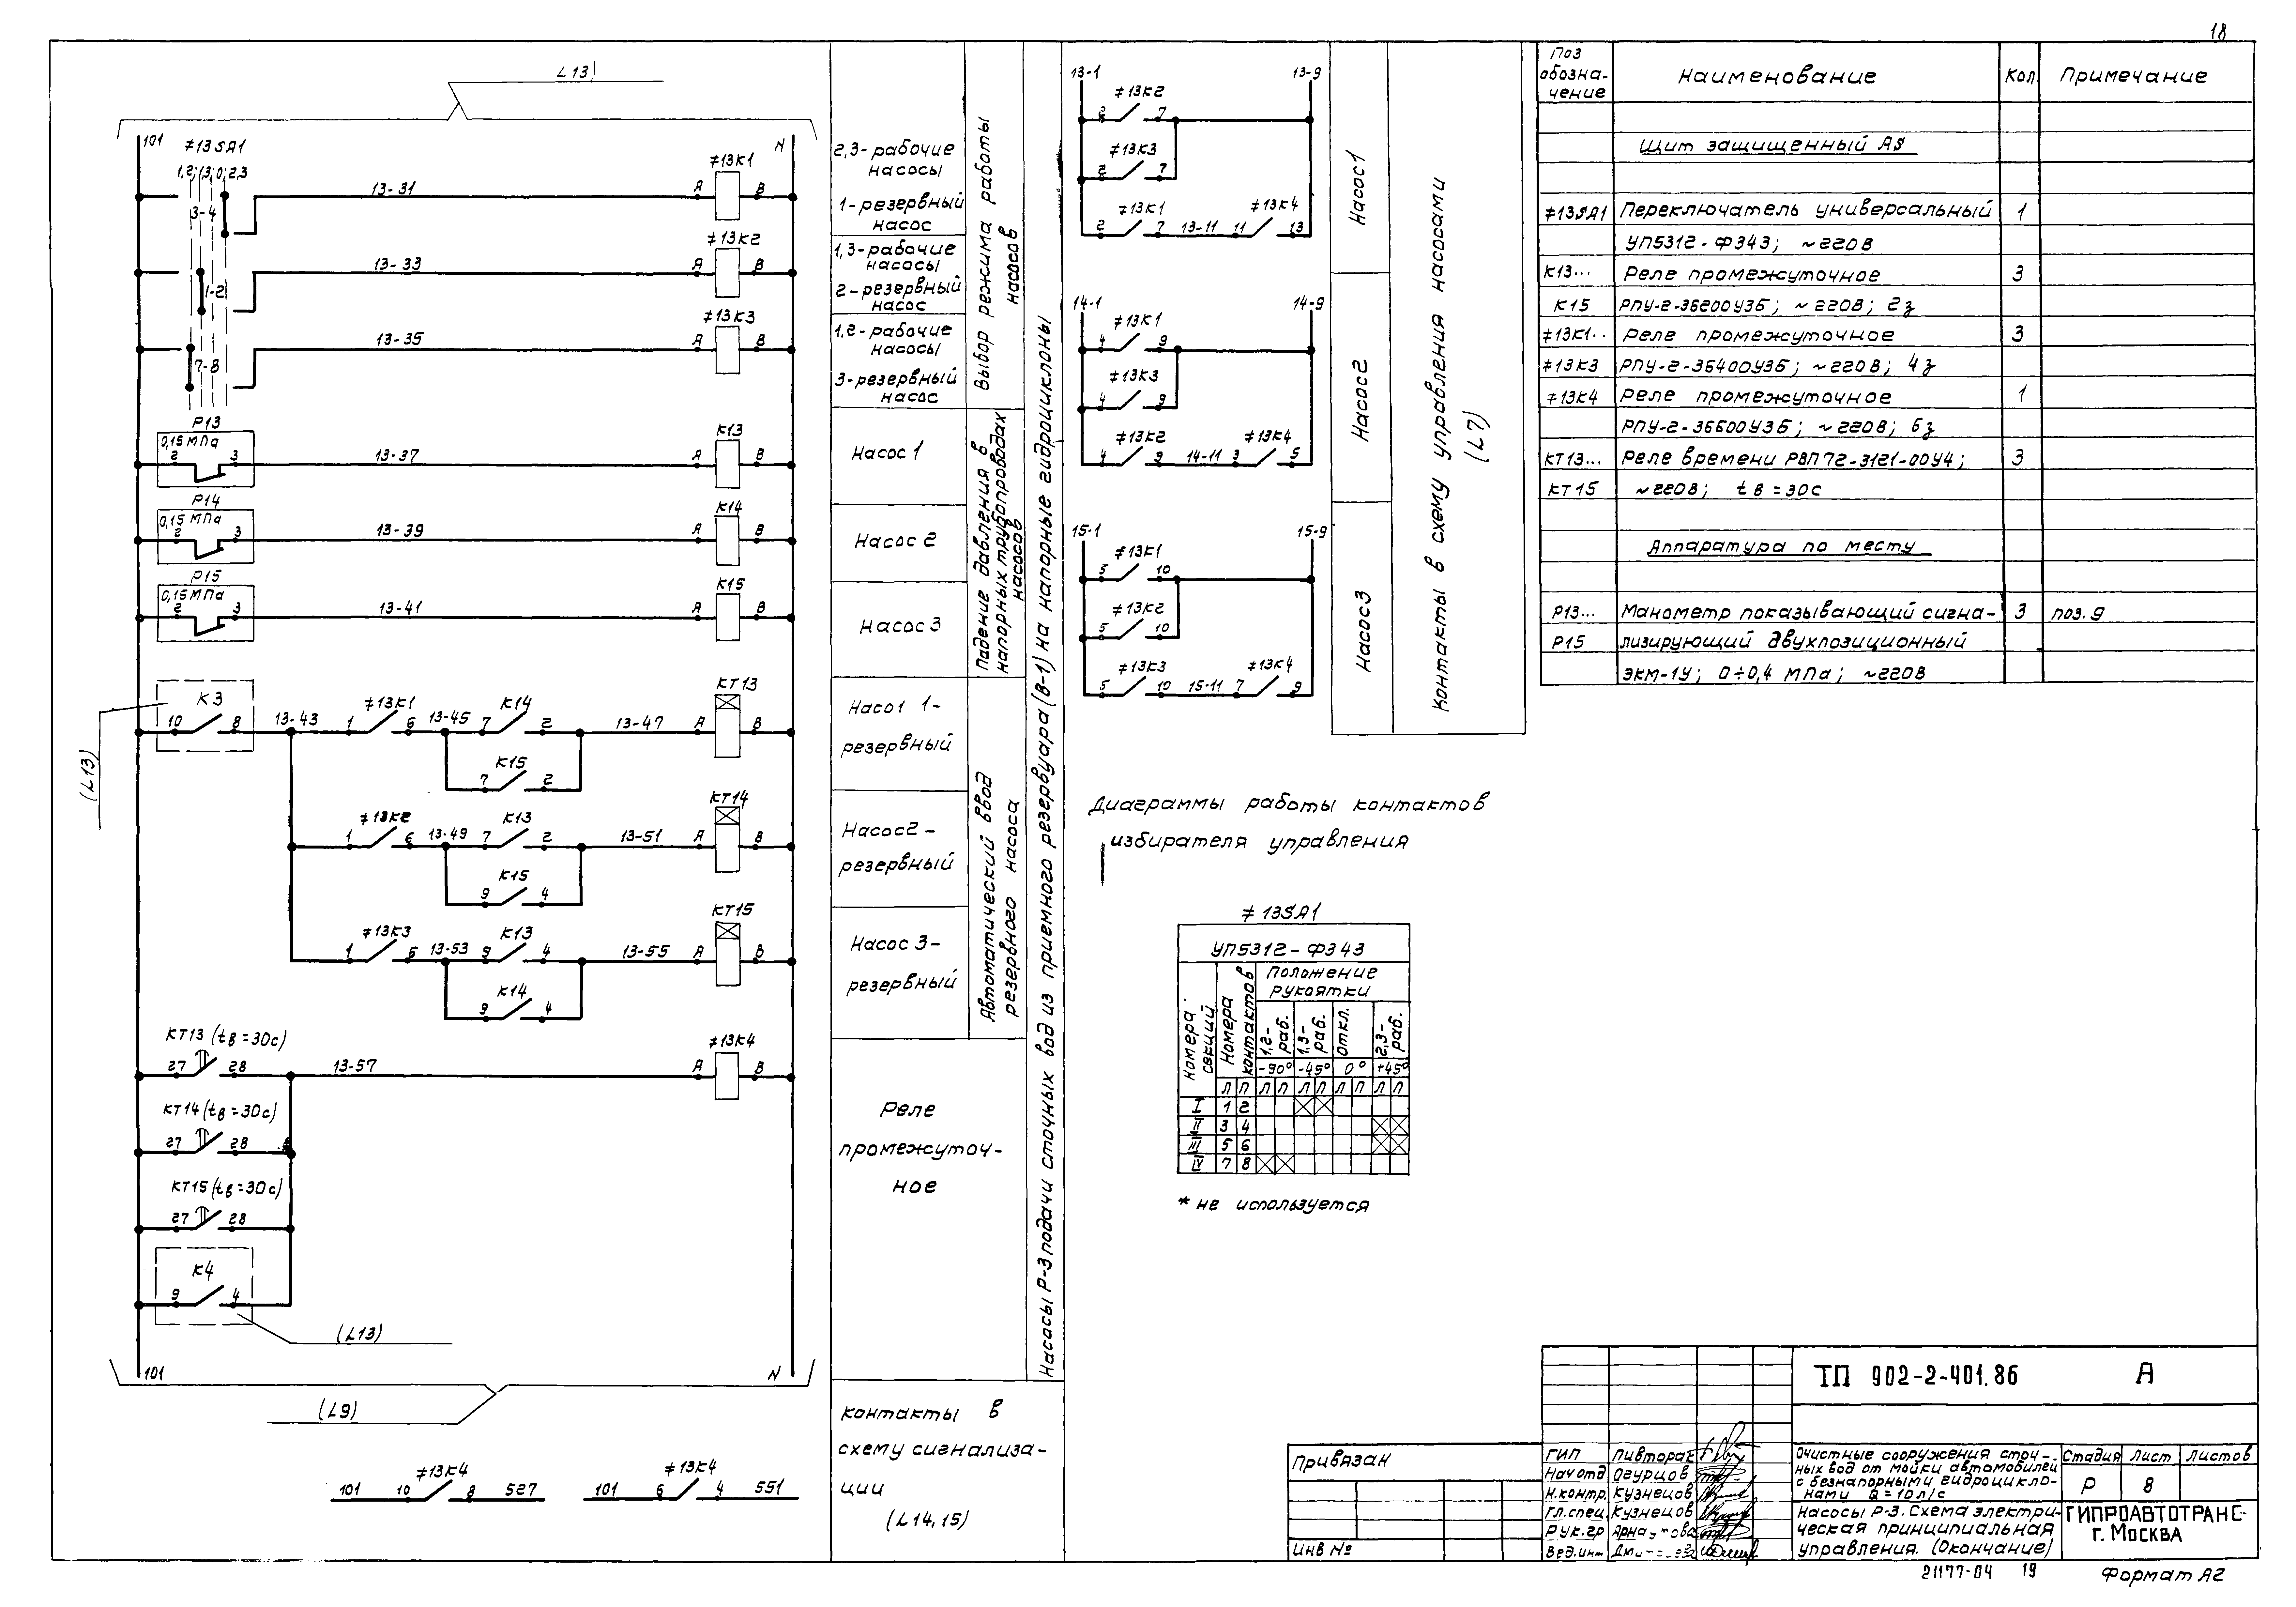 18
L13)
101
≠13SA1
N
1,2; 1,3; 0; 2,3
3-4
13-31
A
≠13К1
В
1-2
13-33
A
≠13К2
В
7-8
13-35
A
≠13К3
В
Р13
0,15 МПа
2 3
13-37
A
К13
В
Р14
0,15 МПа
2 3
13-39
A
К14
В
Р15
0,15 МПа
2 3
13-41
A
К15
В
К3
10 8
13-43
≠13К1
1 6
13-45
К14
7 2
13-47
A
КТ13
В
К15
7 2
(L13)
≠13К2
1 6
13-49
К13
7 2
13-51
A
КТ14
В
К15
9 4
≠13К3
1 6
13-53
К13
9 4
13-55
A
КТ15
В
К14
9 4
КТ13 (tв=30с)
27 28
13-57
A
≠13К4
В
КТ14 (tв=30с)
27 28
КТ15 (tв=30с)
27 28
К4
9 4
(L13)
101
N
(L9)
≠13К4
101 10 8 527
≠13К4
101 6 4 551
2,3-рабочие
насосы
1-резервный
насос
1,3-рабочие
насосы
2-резервный
насос
1,2-рабочие
насосы
3-резервный
насос
Выбор режима работы
насосов
Насос 1
Насос 2
Насос 3
Падение давления в
напорных трубопроводах
насосов
Насо1 1-
резервный
Насос2-
резервный
Насос 3-
резервный
Автоматический ввод
резервного насоса
Реле
промежуточ-
ное
Насосы Р-3 подачи сточных вод из приемного резервуара (В-1) на напорные гидроциклоны
контакты в
схему сигнализа-
ции
(L14,15)
13-1
13-9
≠13К2
2 7
≠13К3
2 7
≠13К1
2 7 13-11
≠13К4
11 13
Насос1
14-1
14-9
≠13К1
4 9
≠13К3
4 9
≠13К2
4 9 14-11
≠13К4
3 5
Насос2
15-1
15-9
≠13К1
5 10
≠13К2
5 10
≠13К3
5 10 15-11
≠13К4
7 9
Насос3
Контакты в схему управления насосами
(L7)
Диаграммы работы контактов
избирателя управления
≠ 13SA1
УП5312-Ф343
Номера секций
Номера контактов
Положение
рукоятки
1,2-раб.
1,3-раб.
откл.
2,3-раб.
-90° -45° 0° +45°
Л П Л П Л П Л П Л П
I 1 2
II 3 4
III 5 6
IV 7 8
* не используется
Поз
обозна-
чение
Наименование
Кол.
Примечание
Щит защищенный А8
≠13SA1 Переключатель универсальный 1
УП5312-Ф343; ~220В
К13... Реле промежуточное 3
К15 РПУ-2-36200У3Б; ~220В; 2з
≠13К1.. Реле промежуточное 3
≠13К3 РПУ-2-36400У3Б; ~220В; 4з
≠13К4 Реле промежуточное 1
РПУ-2-36600У3Б; ~220В; 6з
КТ13... Реле времени РВП72-3121-00У4; 3
КТ15 ~220В; tв=30с
Аппаратура по месту
Р13... Манометр показывающий сигна- 3 поз.9
Р15 лизирующий двухпозиционный
ЭКМ-1У; 0÷0,4 МПа; ~220В
ТП 902-2-401.86 А
Привязан
Инв №
ГИП Пивторак
Нач отд Огурцов
Н.контр. Кузнецов
Гл.спец. Кузнецов
Рук.гр
Вед.инж
Очистные сооружения сточ-
ных вод от мойки автомобилей
с безнапорными гидроцикло-
нами Q=10л/с
Стадия Лист Листов
Р 8
Насосы Р-3. Схема электри-
ческая принципиальная
управления. (Окончание)
ГИПРОАВТОТРАНС
г. Москва
21177-04 19
Формат А2